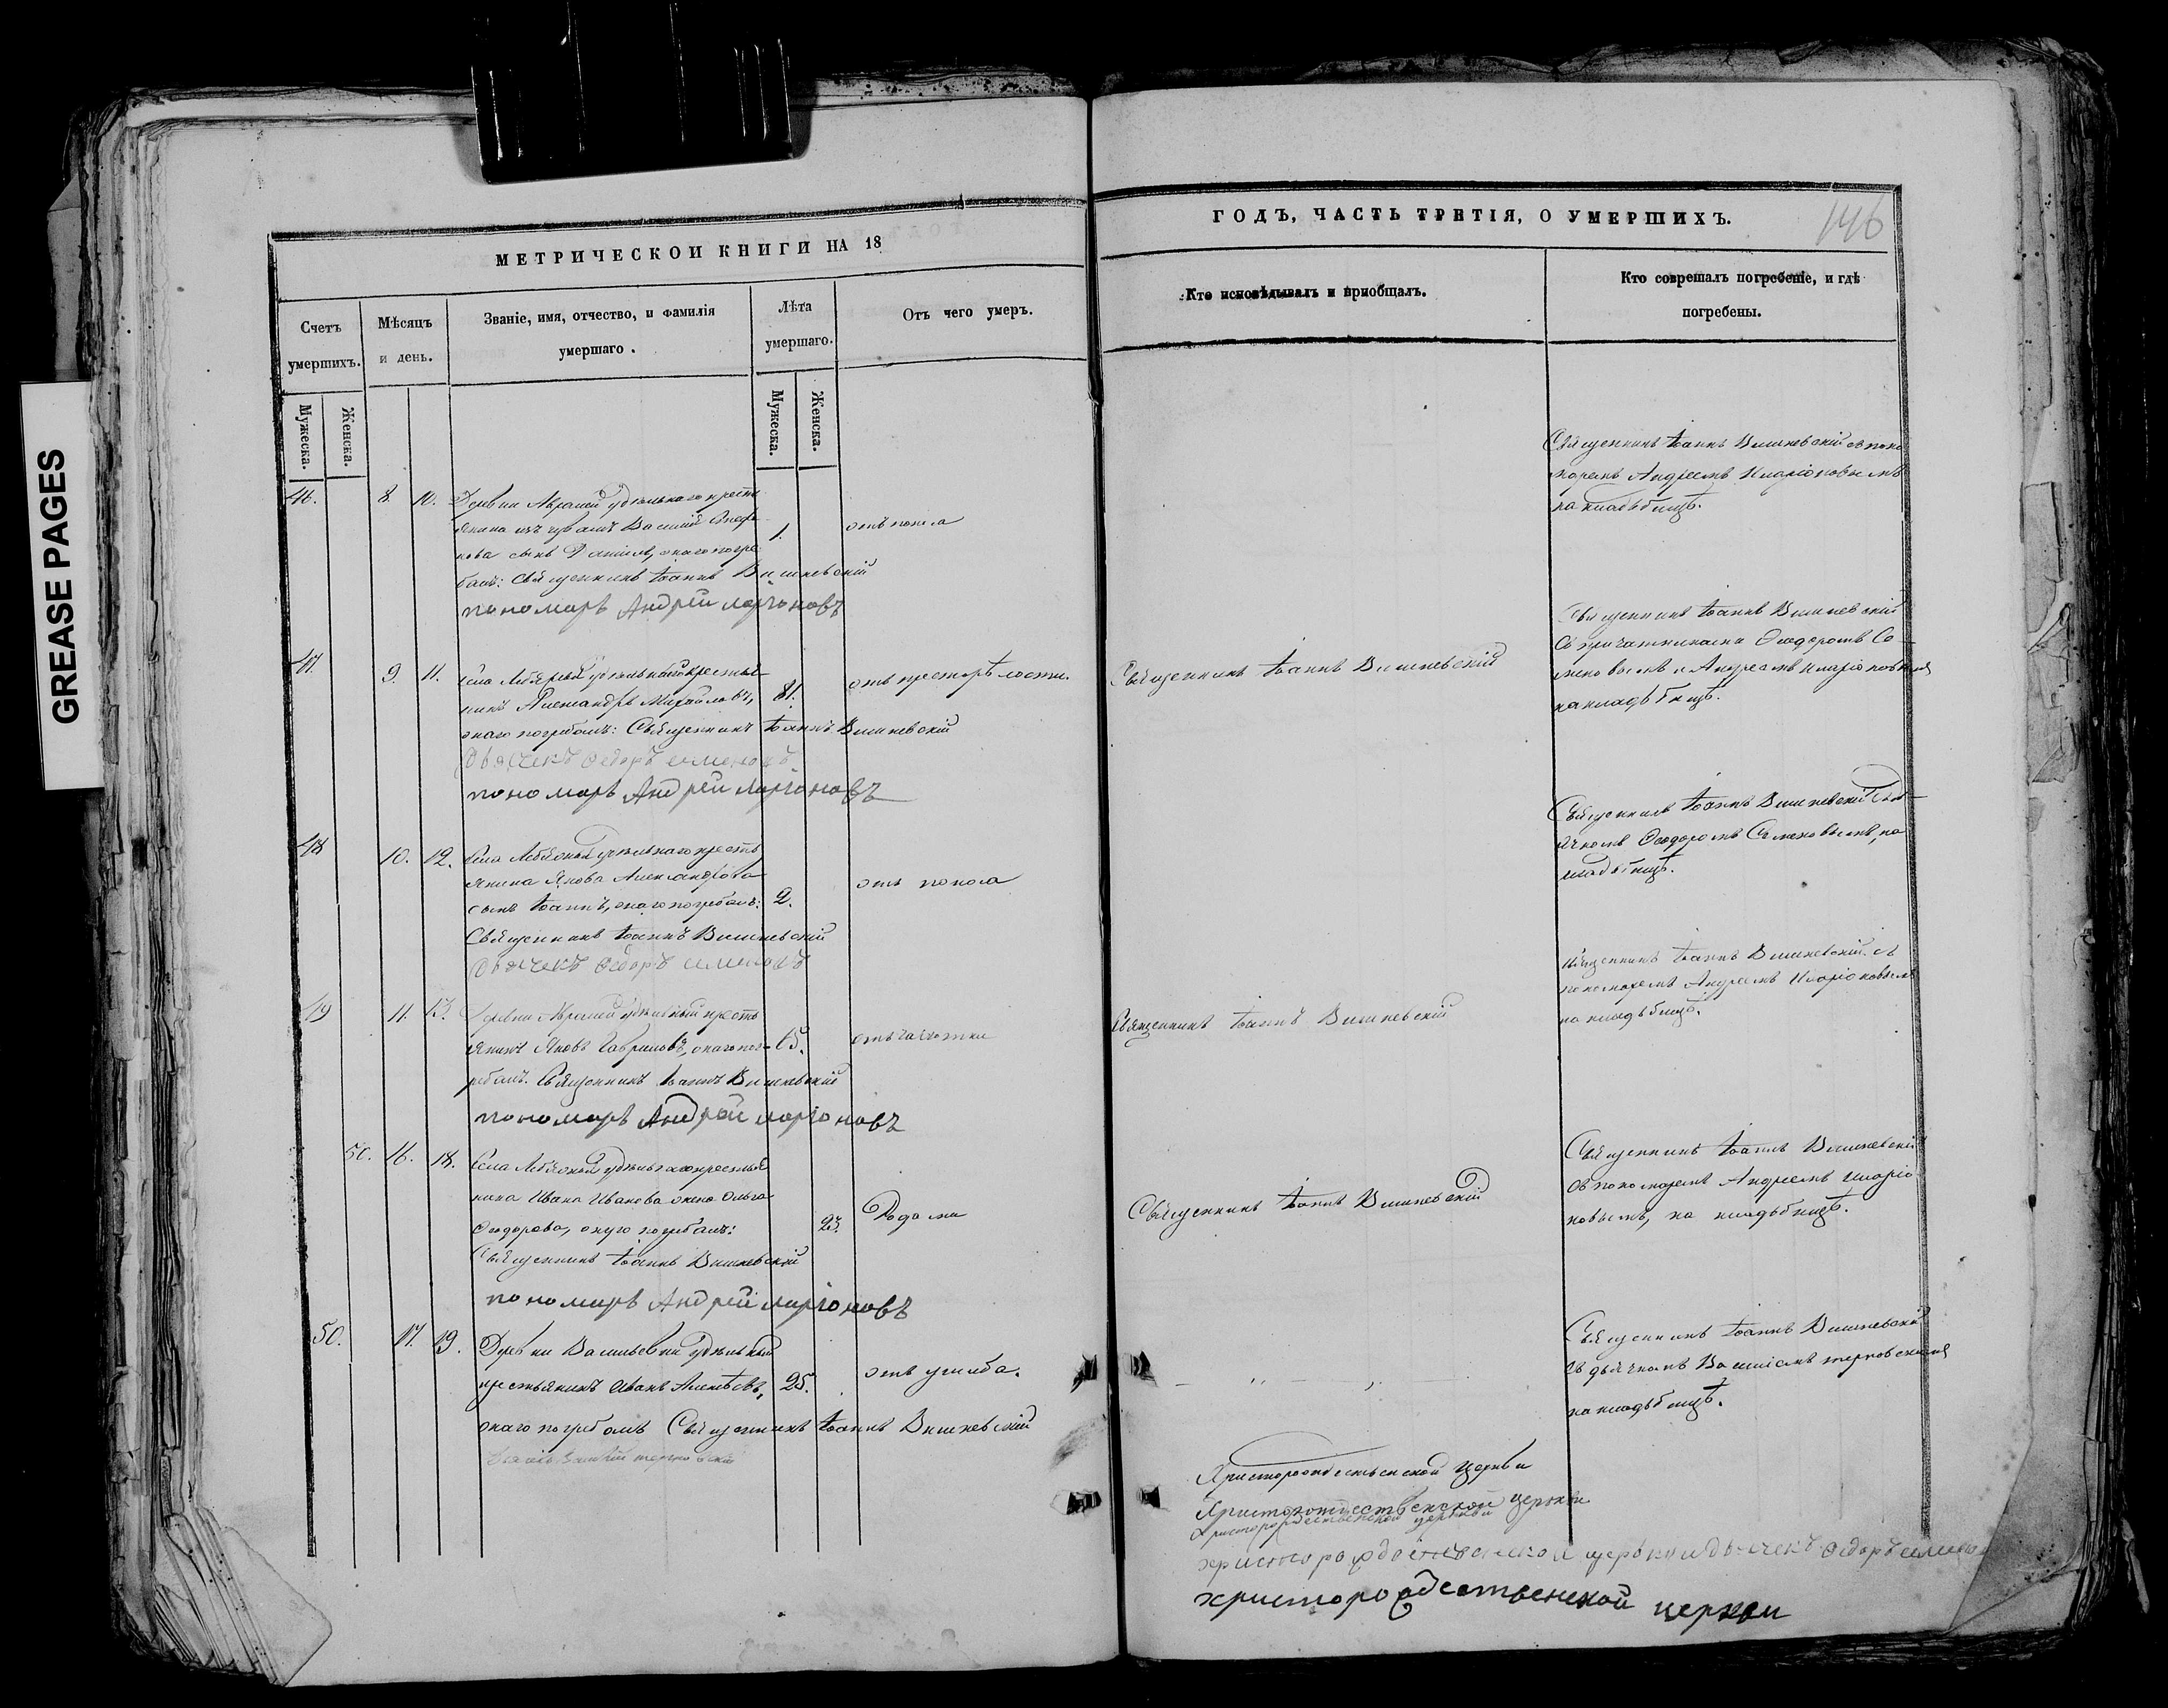 GREASE PAGES
МЕТРИЧЕСКОИ КНИГИ НА 18
Счетъ умершихъ.
Мужеска.
Женска.
Мѣсяцъ и день.
Званіе, имя, отчество, и фамилія
умершаго .
Лѣта
умершаго.
Мужеска.
Женска.
Отъ чего умеръ.
46. 8. 10. Деревни удѣльнаго кресть
янина изъ чувашъ Василій
нова сынъ онаго погре 1. отъ поноса
балъ: Священникъ Іоаннъ Вишневскій
пономарь Андрей ларіоновъ
47. 9. 11. села удѣльный крестья
нинъ Александръ Михайловъ, 81. отъ престарѣлости.
онаго погребалъ: Священникъ Іоаннъ Вишневскій
Дьячекъ Федоръ семеновъ
пономарь Андрей ларіоновъ
48 10. 12. села удѣльнаго кресть
янина Якова Александрова
сынъ Іоаннъ, онаго погребалъ: 2. отъ поноса
Священникъ Іоаннъ Вишневскій
Дьячекъ Федоръ семеновъ
49 11. 13. Деревни удѣльный кресть
янинъ Яковъ Гавриловъ, онаго пог- 65. отъ чахотки
ребалъ. Священникъ Іоаннъ Вишневскій
пономарь Андрей ларіоновъ
50. 16. 18. села удѣльнаго крестья
нина Ивана Иванова жена Ольга
Ѳеодорова, оную погребалъ: 23. Родами
Священникъ Іоаннъ Вишневскій
пономарь Андрей ларіоновъ
50. 17. 19. Деревни Васильевки удѣльный
крестьянинъ Иванъ Алексѣевъ, 25. отъ ушиба.
онаго погребалъ Священникъ Іоаннъ Вишневскій
ГОДЪ, ЧАСТЬ ТРЕТІЯ, О УМЕРШИХЪ.
146
Кто исповѣдывалъ и приобщалъ.
Кто совершалъ погребеніе, и гдѣ
погребены.
Священникъ Іоаннъ Вишневскій съ поно
маремъ Андреемъ Иларіоновымъ
на кладбищѣ.
Священникъ Іоаннъ Вишневскій
Священникъ Іоаннъ Вишневскій
съ причетниками Ѳеодоромъ Се
меновымъ и Андреемъ Иларіоновымъ
на кладбищѣ.
Священникъ Іоаннъ Вишневскій съ дья
чкомъ Ѳеодоромъ Семеновымъ, на
кладбищѣ.
Священникъ Іоаннъ Вишневскій
Священникъ Іоаннъ Вишневскій съ
пономаремъ Андреемъ Иларіоновымъ
на кладбищѣ.
Священникъ Іоаннъ Вишневскій
Священникъ Іоаннъ Вишневскій
съ пономаремъ Андреемъ Иларіо
новымъ, на кладбищѣ.
Священникъ Іоаннъ Вишневскій
съ дьячкомъ Василіемъ
на кладбищѣ.
Христорождественской Церкви
Христорождественской церкви
Христорождественской церкви
христорождественской церкви дьячекъ Федоръ семеновъ
христорождественской церкви